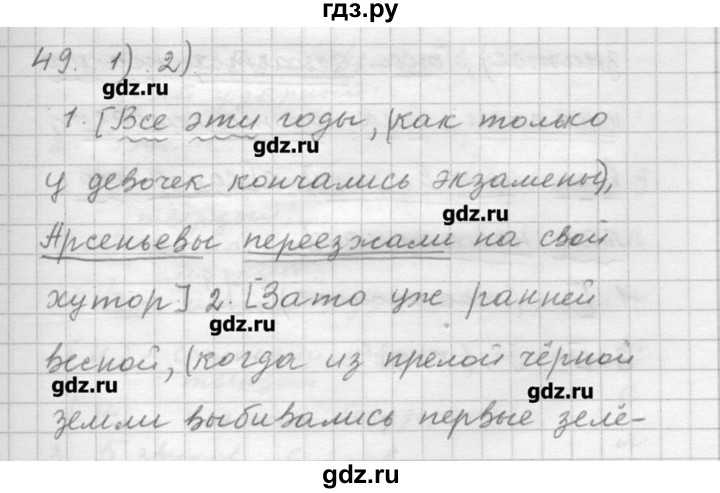 гдз.ру
49. 1). 2).
gdz.ru
1. [Все эти годы, (как только
gdz.ru
у девочек кончались экзамены),
gdz.ru
Арсеньевы переезжали на свой
хутор] 2. [Зато уж ранней
gdz.ru
весной, (когда из прелой чёрной
gdz.ru
gdz.ru
земли выбивались первые зелё-
gdz.ru